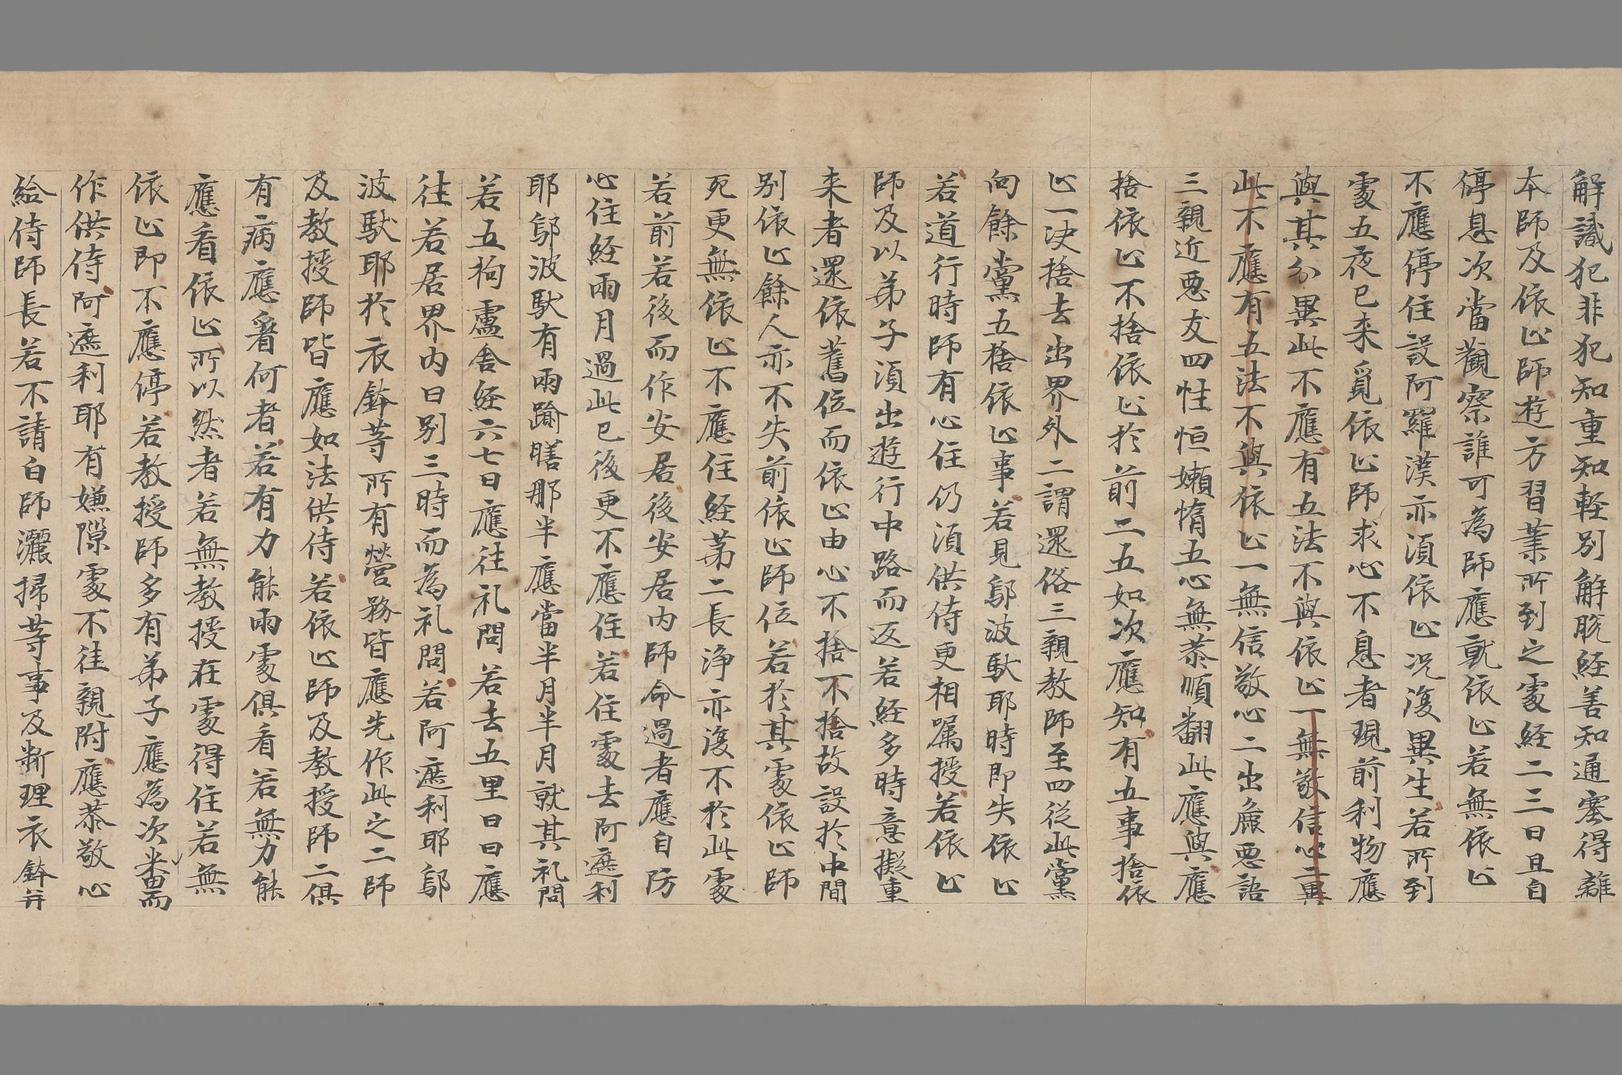 解識犯非犯知重知軽別解脱経善知通塞得離
本師及依止師遊方習業所到之處経二三日且自
停息次當觀察誰可為師應就依止若無依止
不應停住設阿羅漢亦須依止况復異生若所到
處五夜已来覓依止師求心不息者現前利物應
與其分異此不應有五法不與依止一無敬信心二異
此不應有五法不與依止一無信敬心二出麁悪語
三親近悪友四性恒嬾惰五心無恭順翻此應與應
捨依止不捨依止於前二五如次應知有五事捨依
止一决捨去出界外二謂還俗三親教師至四従此黨
向餘黨五捨依止事若見鄔波馱耶時即失依止
若道行時師有心住仍須供侍更相属授若依止
師及以弟子須出遊行中路而返若経多時意擬重
来者還依舊位而依止由心不捨不捨故設於中間
別依止餘人亦不失前依止師位若於其處依止師
死更無依止不應住経苐二長浄亦復不於此處
若前若後而作安居後安居内師命過者應自防
心住経兩月過此已後更不應住若住處去阿遮利
耶鄔波馱有兩踰膳那半應當半月半月就其礼問
若五拘盧舍経六七日應往礼問若去五里日日應
往若居界内日別三時而為礼問若阿遮利耶鄔
波馱耶於衣鉢等所有營務皆應先作此之二師
及教授師皆應如法供侍若依止師及教授師二俱
有病應看何者若有力能兩處俱看若無力能
應看依止所以然者若無教授在處得住若無
依止即不應停若教授師多有弟子應為次番而
作供侍阿遮利耶有嫌隙處不往親附應恭敬心
給侍師長若不請白師灑掃等事及料理衣鉢并